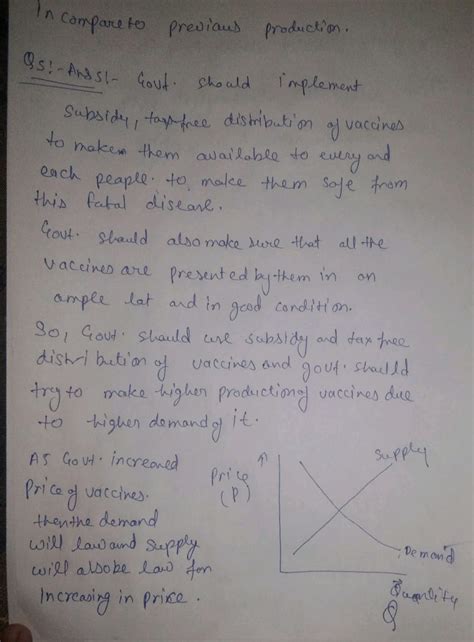 In compare to previous production.
Q5!- Ans5!- Govt. should implement
subsidy, tax-free distribution of vaccines
to make them available to every and
each peaple. to make them safe from
this fatal disease.
Govt. should also make sure that all the
vaccines are presented by them in an
ample lat and in good condition.
So, Govt. should use subsidy and tax free
distribution of vaccines and govt. should
try to make higher production of vaccines due
to higher demand of it.
AS Govt. increased
price of vaccines.
then the demand
will law and supply
will also be law for
Increasing in price.
Price
(P)
Supply
Demand
Quantity
Q